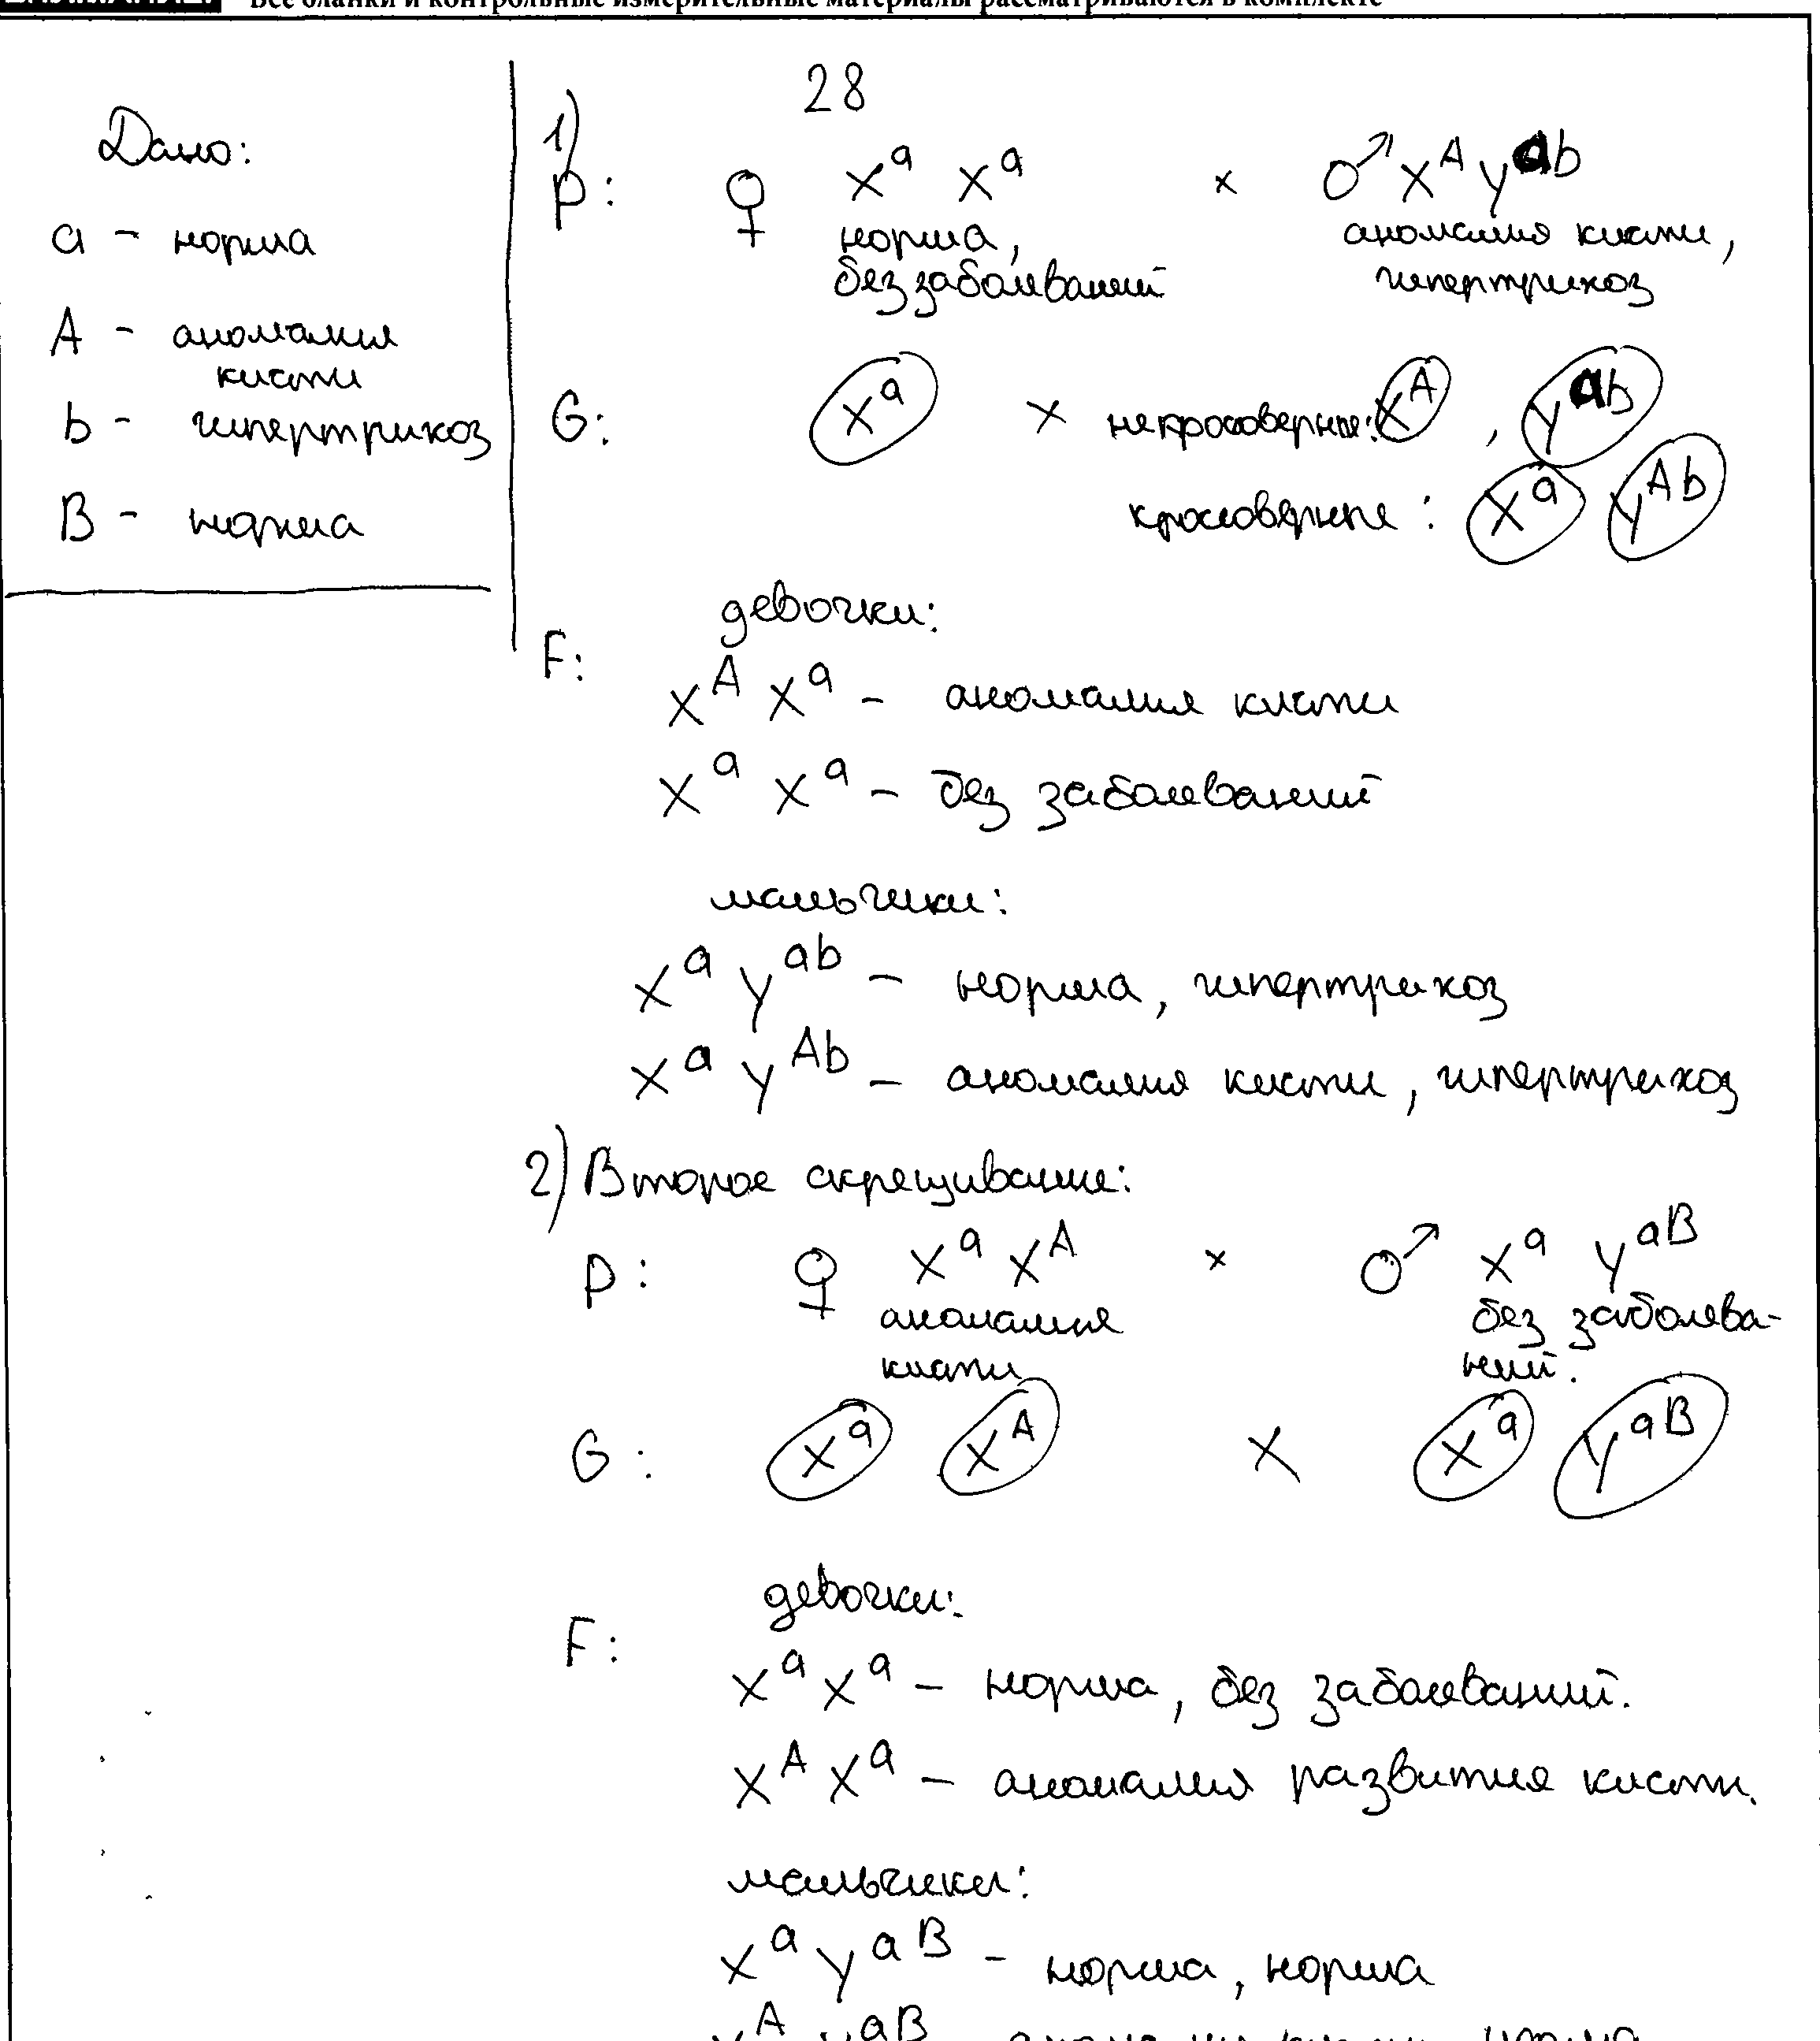 Все бланки и контрольные измерительные материалы рассматриваются в комплекте
28
Дано:
a - норма
A - аномалия
кисти
b - гипертрихоз
B - норма
1)
P: ♀ X^a X^a × ♂ X^A Y^ab
норма, аномалия кисти,
без заболеваний гипертрихоз
G: X^a × некроссоверные: X^A, Y^ab
кроссоверные: X^a Y^Ab
девочки:
F:
X^A X^a - аномалия кисти
X^a X^a - без заболеваний
мальчики:
X^a Y^ab - норма, гипертрихоз
X^a Y^Ab - аномалия кисти, гипертрихоз
2) Второе скрещивание:
P: ♀ X^a X^A × ♂ X^a Y^aB
аномалия без заболева-
кисти ний.
G: X^a X^A × X^a Y^aB
девочки:
F:
X^a X^a - норма, без заболеваний.
X^A X^a - аномалия развития кисти.
мальчики:
X^a Y^aB - норма, норма
X^A Y^aB кисти, норма